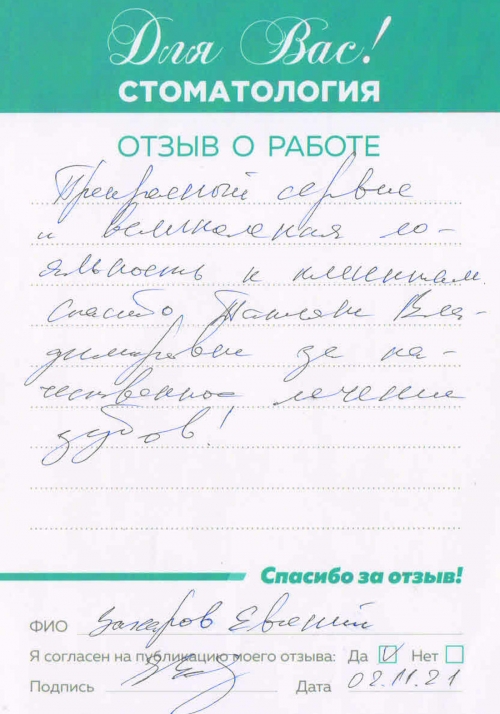 Для Вас!
СТОМАТОЛОГИЯ
ОТЗЫВ О РАБОТЕ
Прекрасный сервис
и великолепная ло-
яльность к клиентам.
Спасибо Татьяне Вла-
димировне за ка-
чественное лечение
зубов!
Спасибо за отзыв!
ФИО Захаров Евгений
Я согласен на публикацию моего отзыва: Да Нет
Подпись Дата 02.11.21